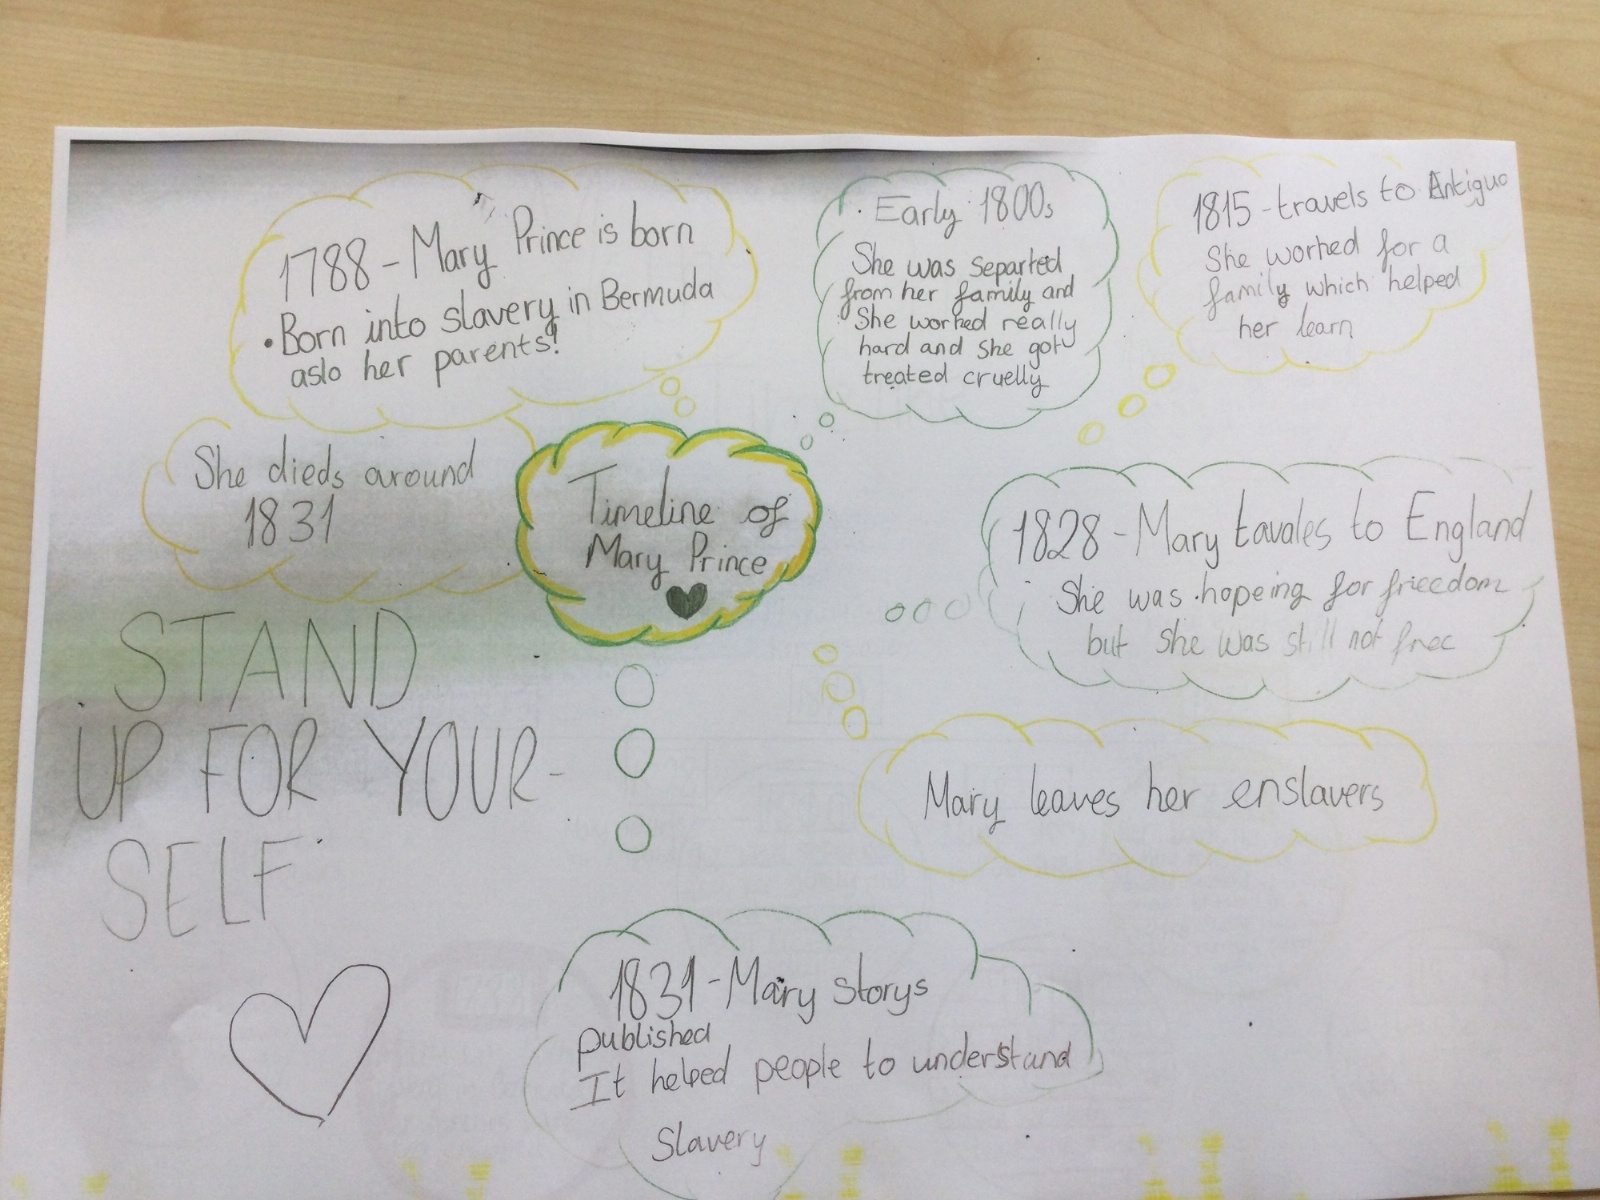 Timeline of
Mary Prince
1788 - Mary Prince is born
• Born into slavery in Bermuda
aslo her parents!
Early 1800s
She was separted
from her family and
She worked really
hard and she got
treated cruelly
1815 - travels to Antigua
She worked for a
family which helped
her learn
1828 - Mary tavales to England
She was hopeing for freedom
but she was still not free
Mary leaves her enslavers
1831 - Mary storys
published
It helped people to understand
Slavery
She dieds around
1831
STAND
UP FOR YOUR-
SELF